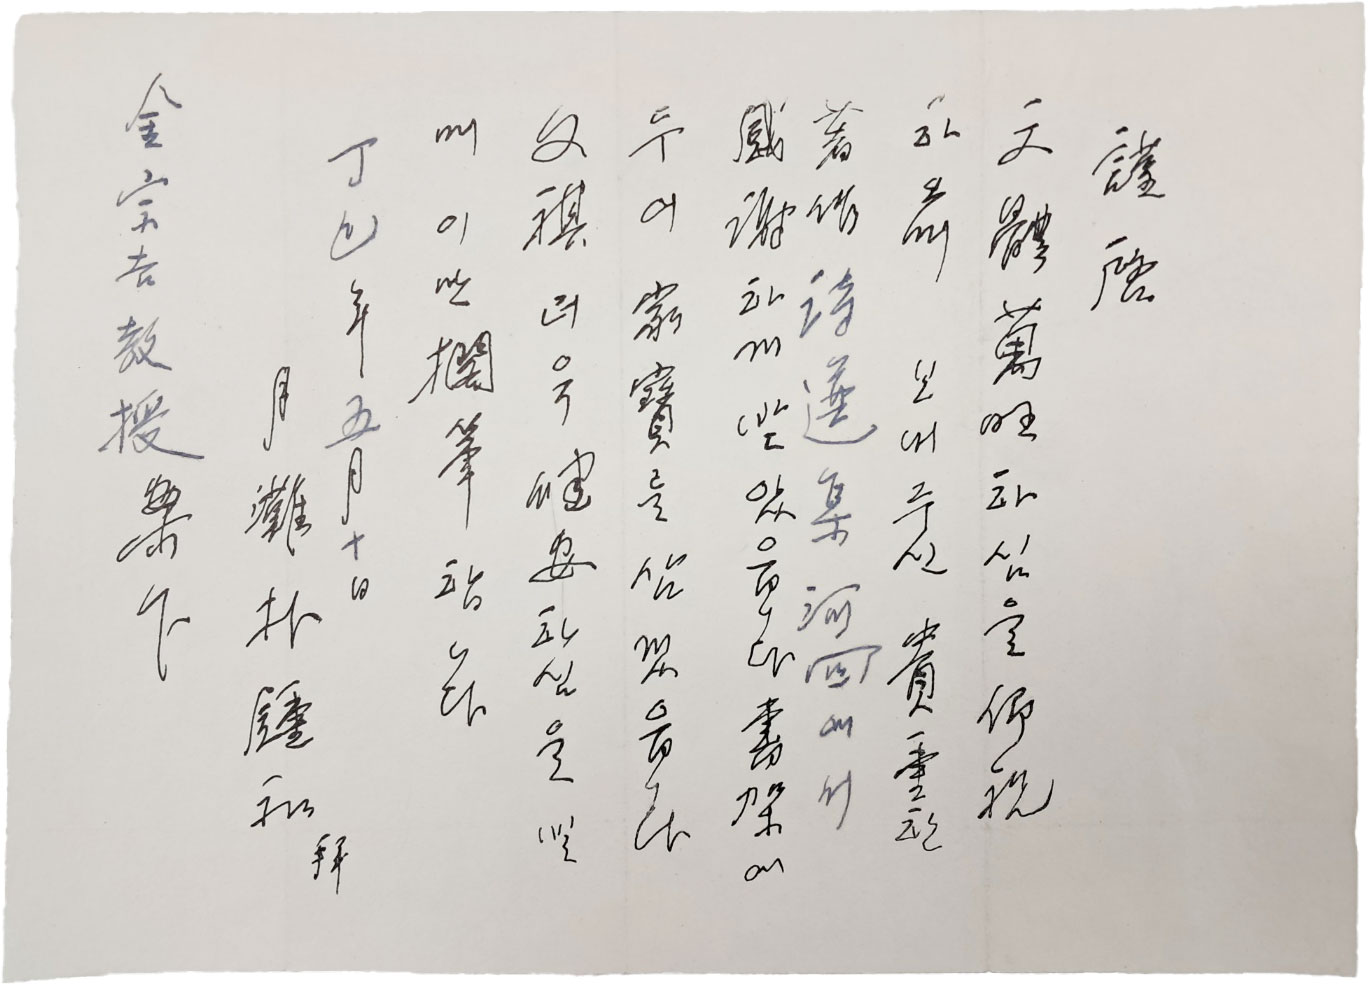 謹啓
文體萬旺하심을 仰祝
하오며 보내주신 貴重한
著作 詩選集 河回에서
感謝하게 받았읍니다 書架에
두어 家寶를 삼겠읍니다
文祺 더욱 健安하심을 빌
며 이만 擱筆합니다
丁巳年 五月 十日
月灘 朴鍾和
拜
金宗吉教授 案下